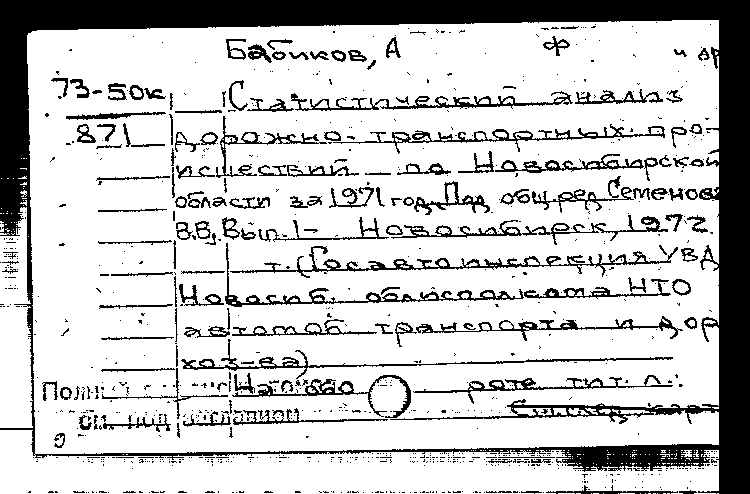 Бабиков, А ф и др
73-50к Статистический анализ
871 дорожно-транспортных про-
исшествий по Новосибирской
области за 1971 год. Под общ. ред. Семенова
В.В. Вып. 1- Новосибирск, 1972.
т. (Госавтоинспекция УВД
Новосиб. облисполкома НТО
автомоб. транспорта и дор
хоз-ва)
Полный На обо роте тит. л.:
см. под заглавием След. карт